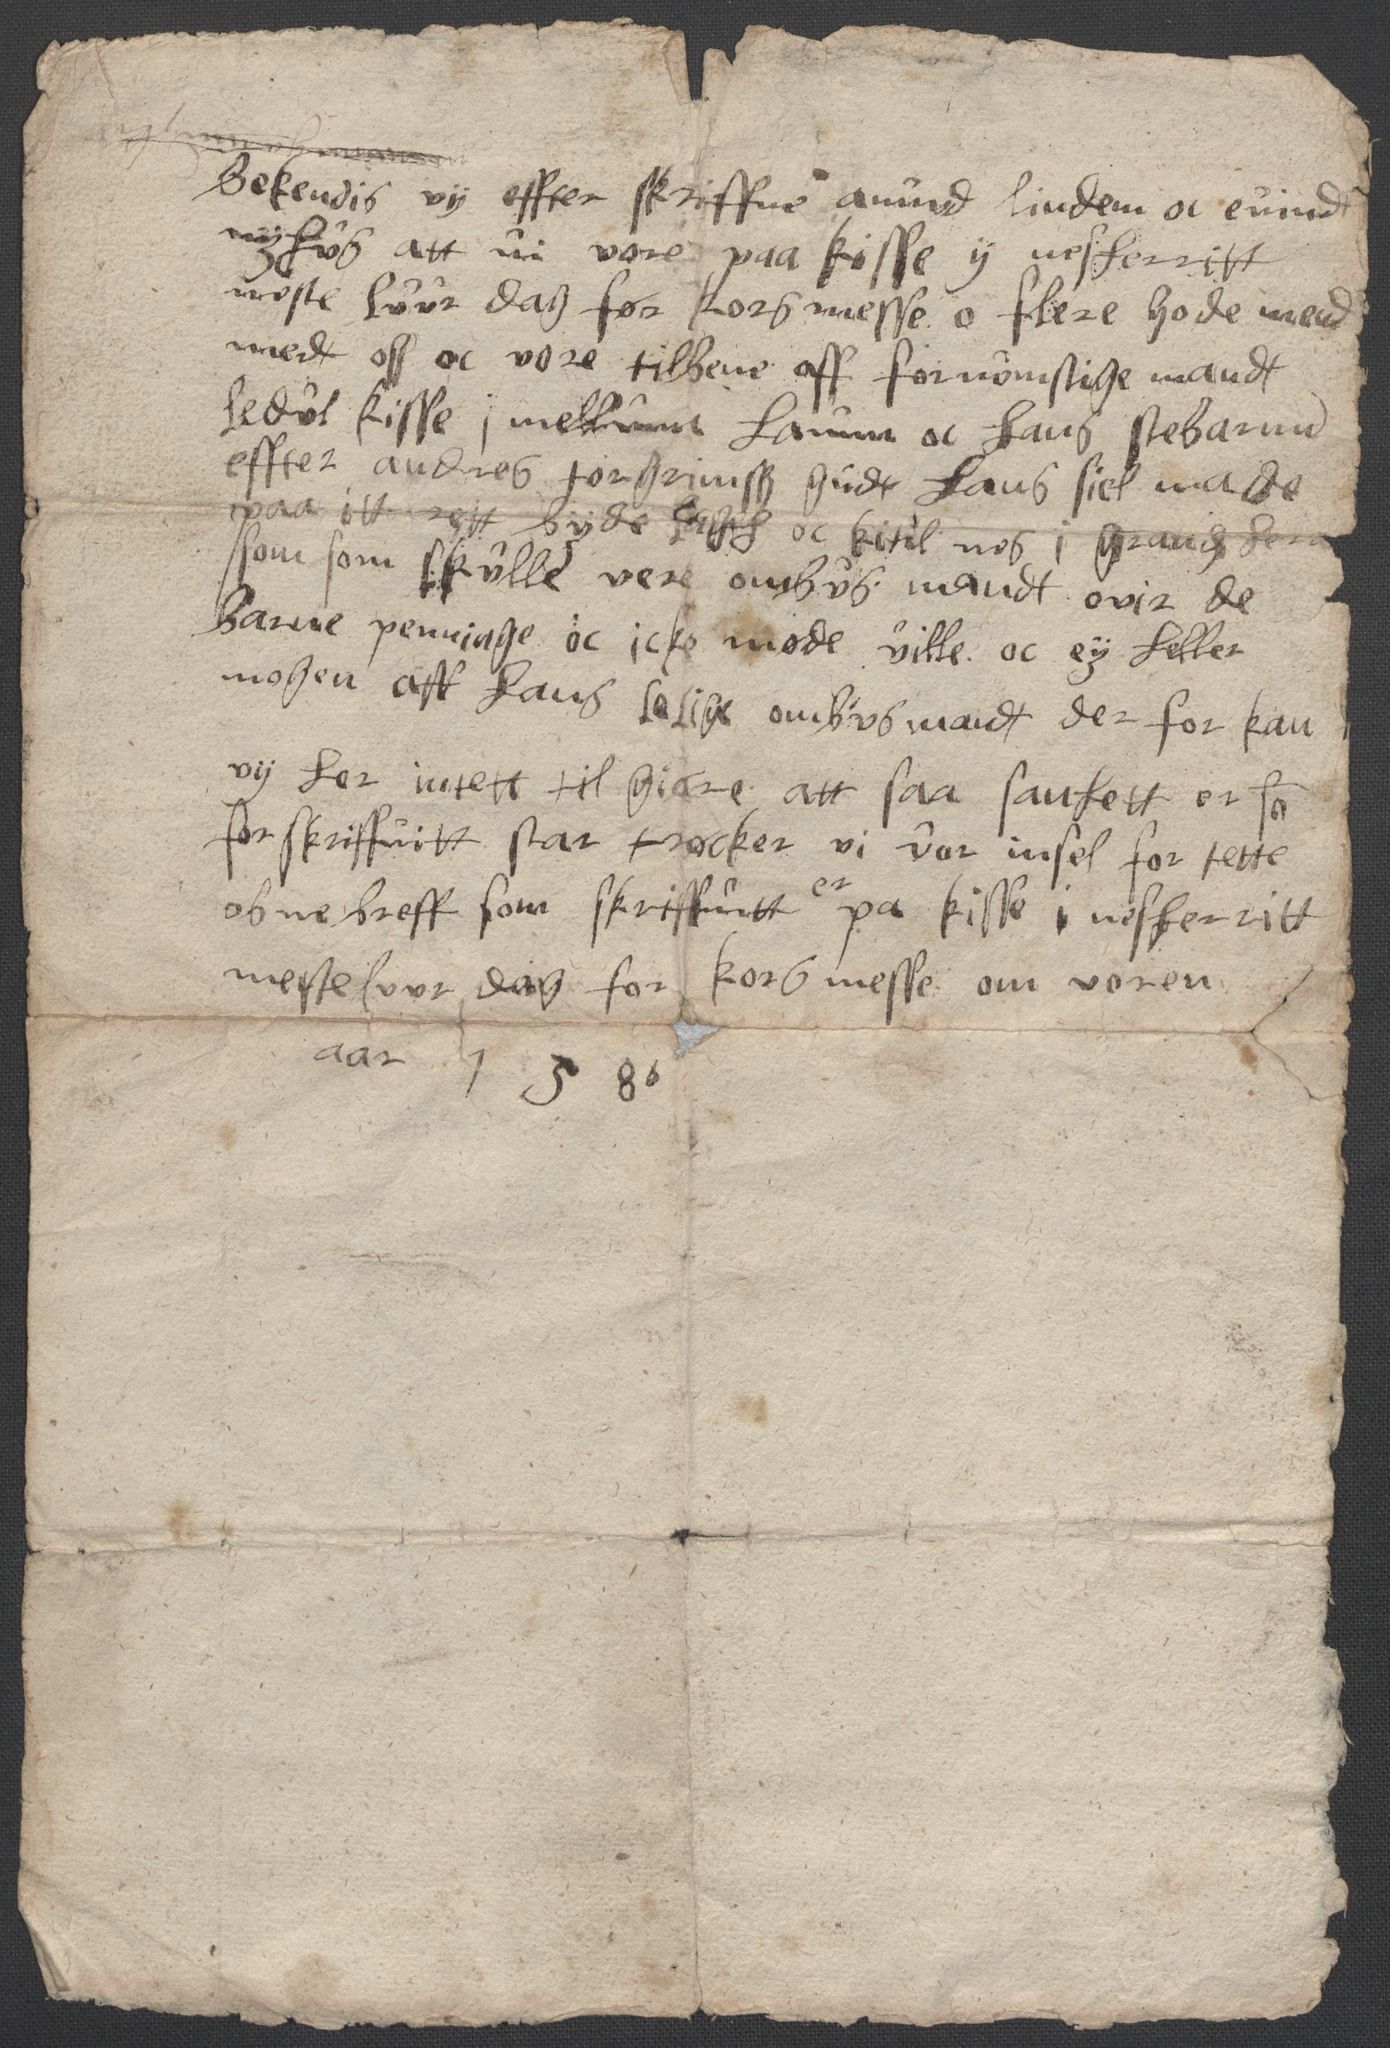 Bekendis vij effter skriffne amund lindem oc euindt
nyhus att vi vore paa kisse ij nesherritt
neste luur dag før kors messe o flere gode mend
medt oss oc vore tilbene aff fornomstige mandt
ledul kisse j mellum hanum oc hans stebarnn
effter andres torgrimss gudt hans siel nade
paa itt rett byde oc kitil nes i
som som skulle vere ombus mandt ovir de
barne peninge oc icke møde ville oc ey heller
nogen aff hans lelige ombus mandt der for kan
vij her intett til giøre att saa sanhett er so
for skriffuitt star trøcker vi vor insel for tette
obne breff som skriffuitt er pa kisse i nesherritt
neste luur dag for kors messe om voren
aar 1586